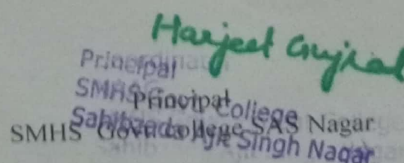 Harjeet Gujral
Principal
SMHS Govt College
Sahibzada Ajit Singh Nagar
Principal
SMHS Govt College SAS Nagar